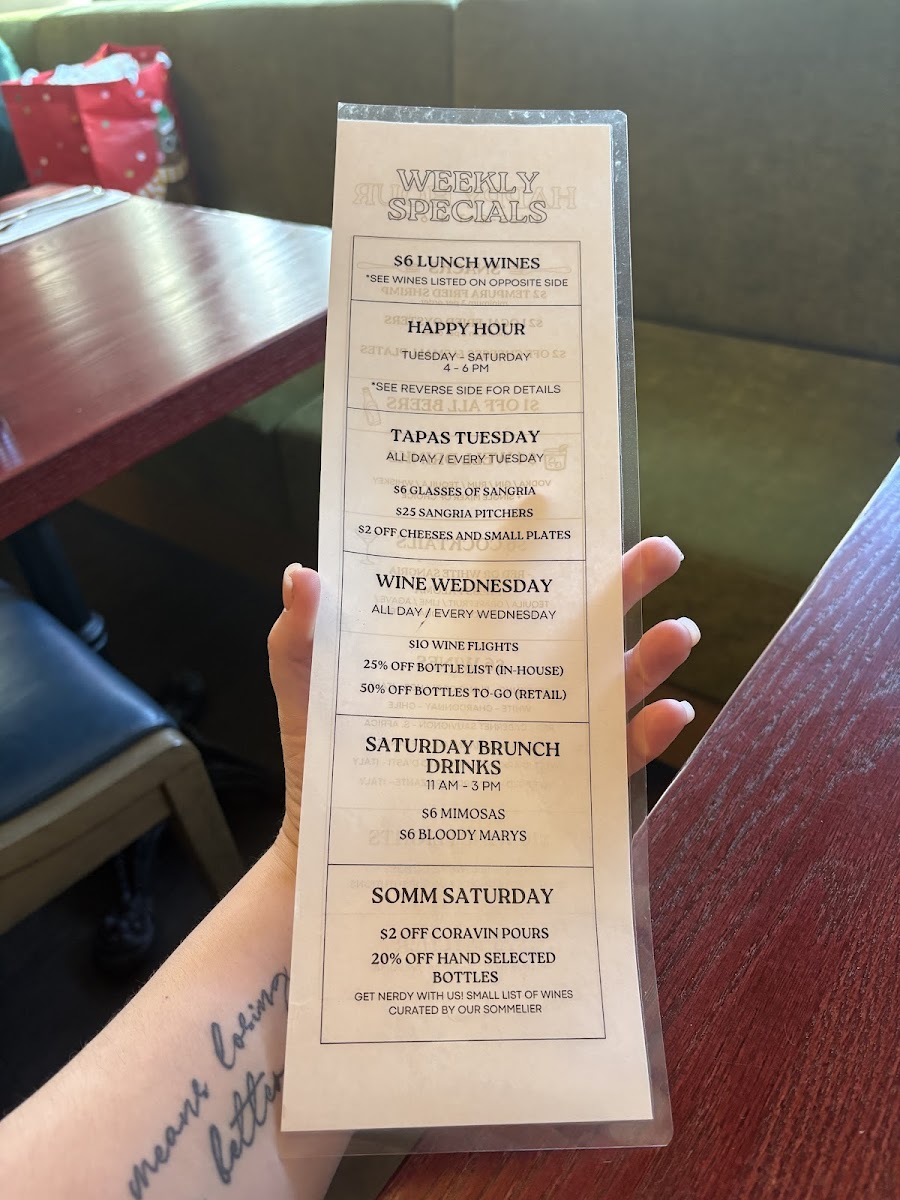 WEEKLY
SPECIALS
$6 LUNCH WINES
*SEE WINES LISTED ON OPPOSITE SIDE
HAPPY HOUR
TUESDAY - SATURDAY
4 - 6 PM
*SEE REVERSE SIDE FOR DETAILS
TAPAS TUESDAY
ALL DAY / EVERY TUESDAY
$6 GLASSES OF SANGRIA
$25 SANGRIA PITCHERS
$2 OFF CHEESES AND SMALL PLATES
WINE WEDNESDAY
ALL DAY / EVERY WEDNESDAY
$10 WINE FLIGHTS
25% OFF BOTTLE LIST (IN-HOUSE)
50% OFF BOTTLES TO-GO (RETAIL)
SATURDAY BRUNCH
DRINKS
11 AM - 3 PM
$6 MIMOSAS
$6 BLOODY MARYS
SOMM SATURDAY
$2 OFF CORAVIN POURS
20% OFF HAND SELECTED
BOTTLES
GET NERDY WITH US! SMALL LIST OF WINES
CURATED BY OUR SOMMELIER
means losing
better